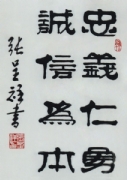 忠義仁勇
誠信為本
張呈祥書